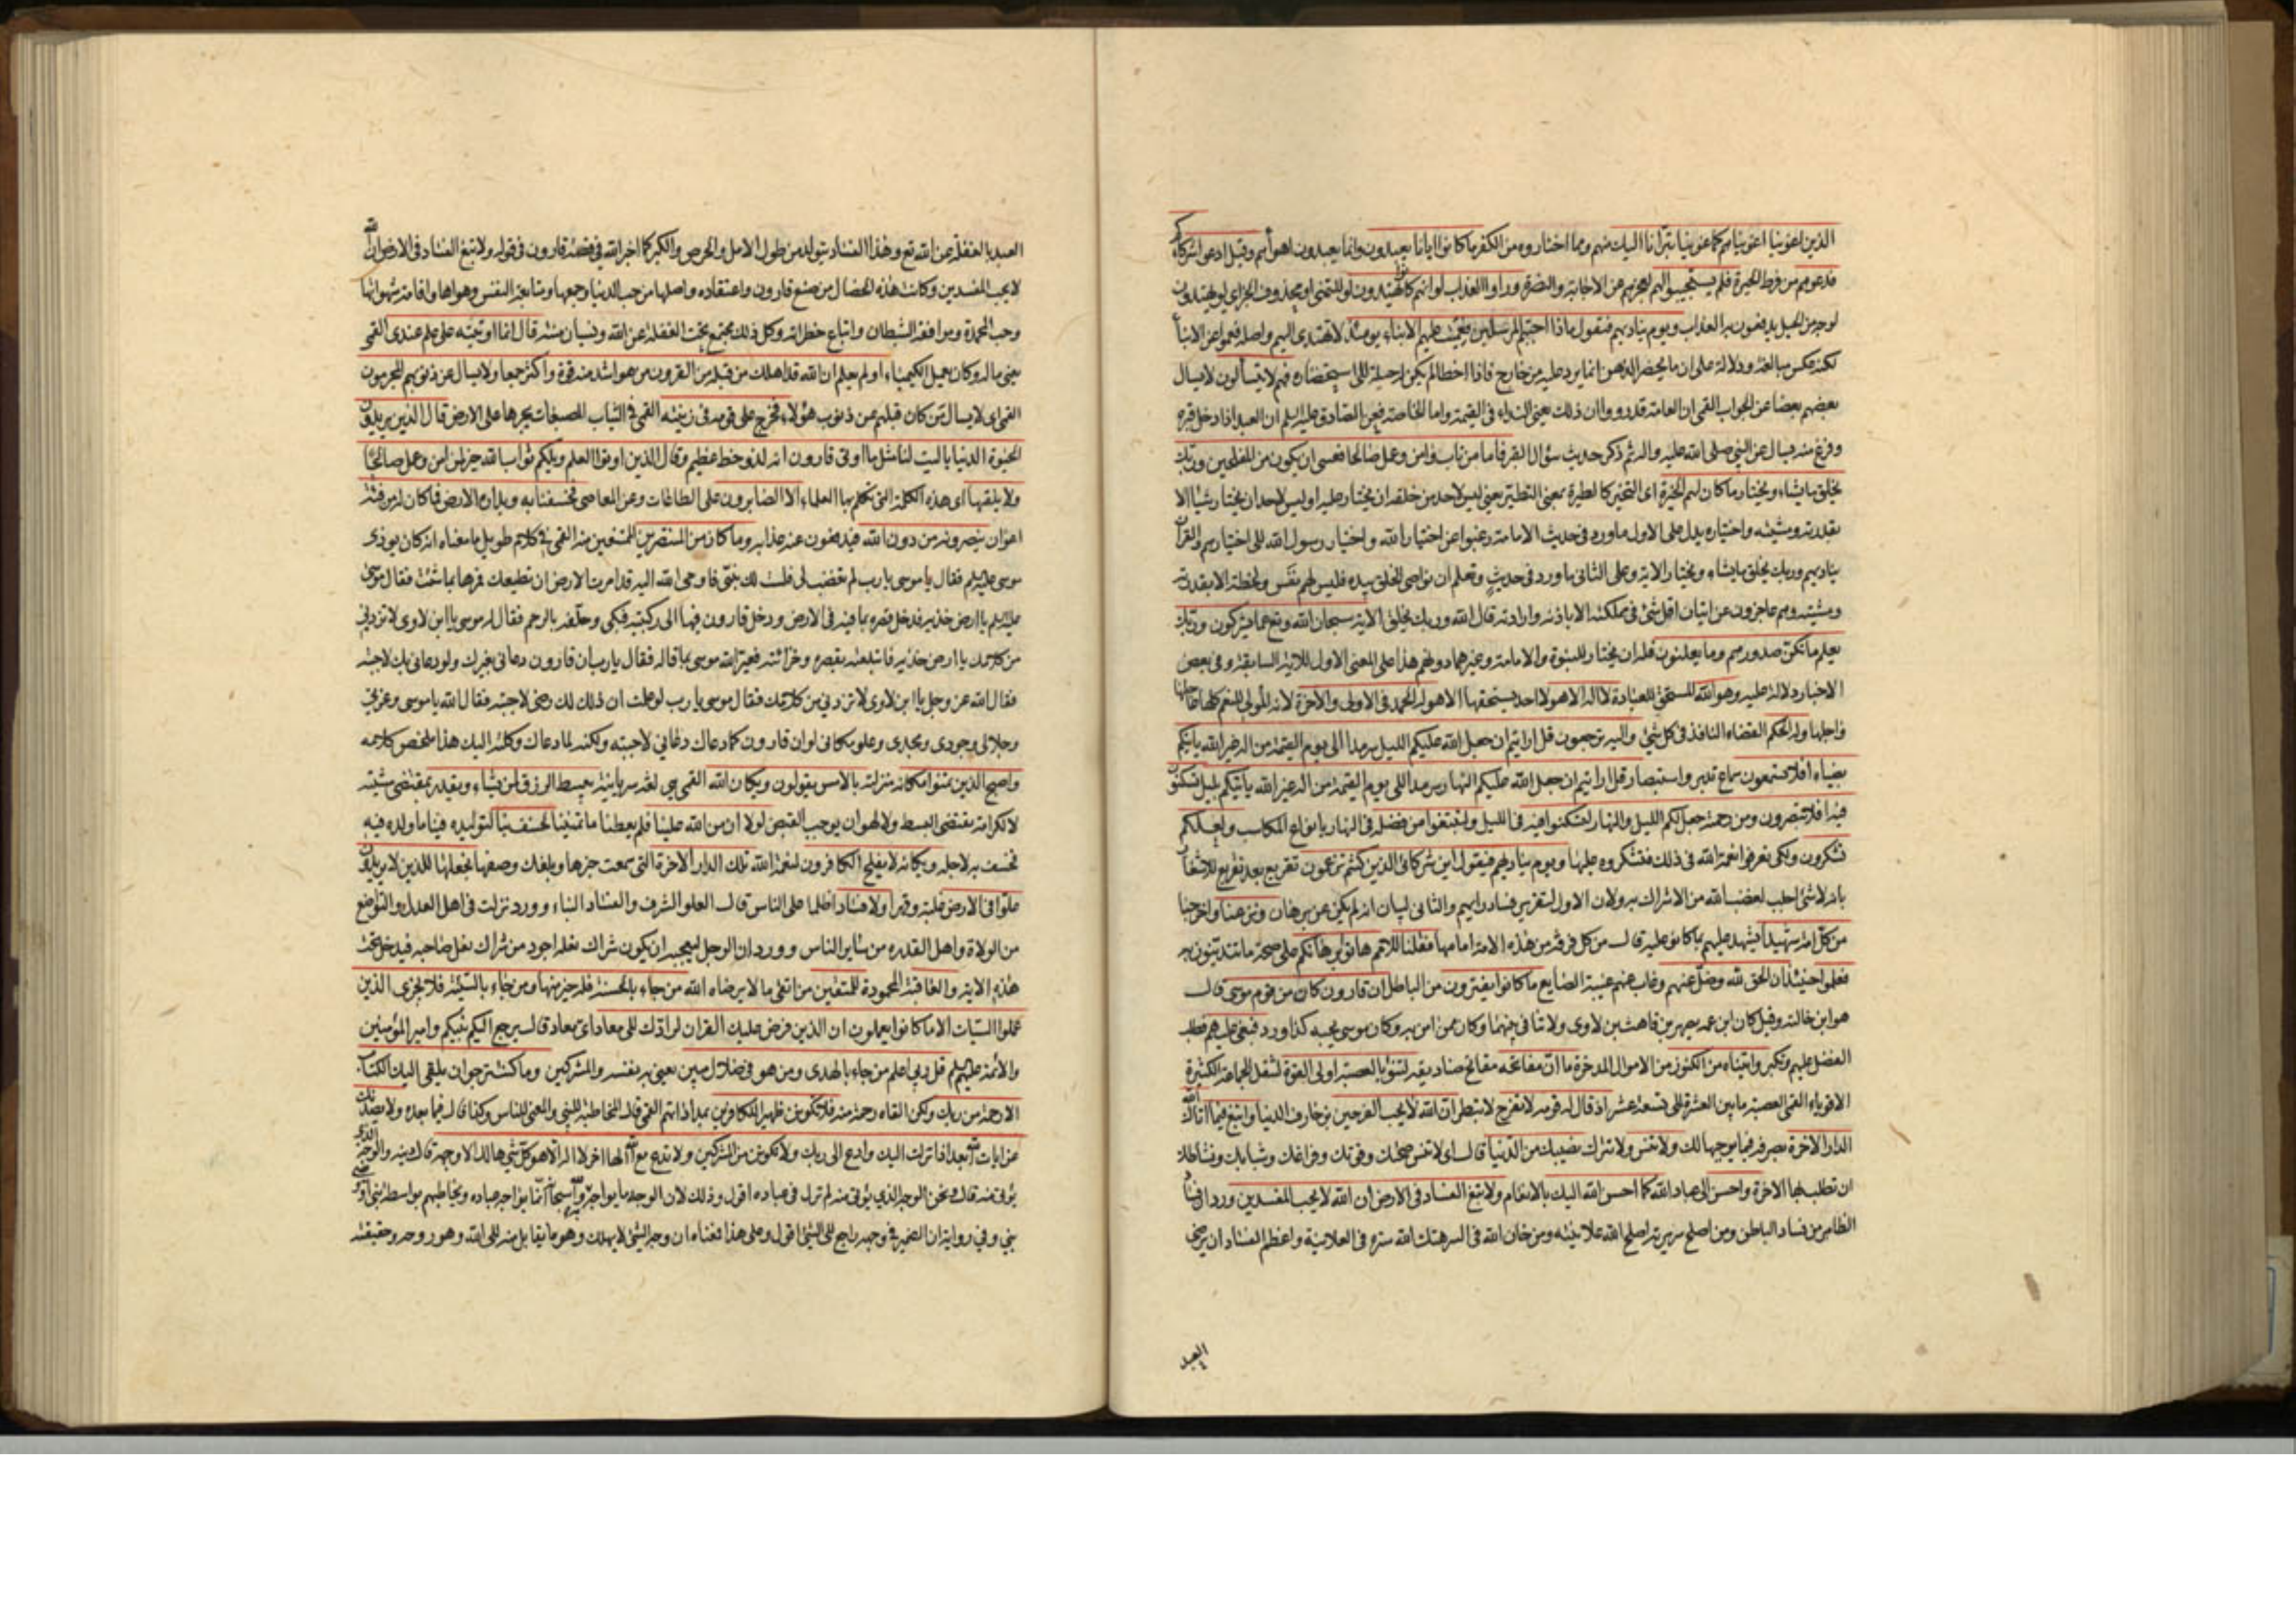 الذين اغوينا اغويناهم كما غوينا تبرأنا اليك منهم ومما اختاروه من الكفر ما كانوا ايانا يعبدون وانما يعبدون اهوائهم وقيل ادعوا شركاءكم
فدعوهم من فرط الحيرة فلم يستجيبوا لهم لعجزهم عن الاجابة والنصرة وراوا العذاب لو انهم كانوا يهتدون لو للتمنى او محذوف الجزاى لو يهتدون
لوجه من الحيل يدفعون به العذاب ويوم يناديهم فيقول ماذا اجبتم المرسلين فعميت عليهم الانباء يومئذ لا تهتدى اليهم واصله فعموا عن الانباء
لكنه عكس مبالغة ودلالة على ان ما يحضر الذهن انما يرد عليه من خارج فاذا اخطا لم يكن له حيلة الى استحضاره فهم لا يتسائلون لا يسال
بعضهم بعضا عن الجواب القمى ان العامة قد رووا ان ذلك يعنى النداء فى القيمة واما الخاصة فعن الصادق عليه السلم ان العبد اذا دخل قبره
وفزع منه يسال عن النبى صلى الله عليه واله ثم ذكر حديث سؤال القبر فاما من تاب وامن وعمل صالحا فعسى ان يكون من المفلحين وربك
يخلق ما يشاء ويختار ما كان لهم الخيرة اى التخير كالطيرة بمعنى التطير يعنى ليس لاحد من خلقه ان يختار عليه او ليس لاحد ان يختار شيئا الا
بقدرته ومشيته واختياره يدل على الاول ما ورد فى حديث الامامة رغبوا عن اختيار الله واختيار رسول الله الى اختيارهم والقرآن
يناديهم وربك يخلق ما يشاء ويختار الاية وعلى الثانى ما ورد فى حديث وتعلم ان نواصى الخلق بيده فليس لهم نفس ولا لحظة الا بقدرته
ومشيته وهم عاجزون عن اتيان اقل شئ فى مملكته الا باذنه وارادته قال الله وربك يخلق الاية سبحان الله وتع عما يشركون وربك
يعلم ما تكن صدورهم وما يعلنون فله ان يختار للنبوة والامامة وغيرهما دونهم هذا على المعنى الاول للاية السابقة وفى بعض
الاخبار دلالة عليه وهو الله المستحق للعبادة لا اله الا هو لا احد يستحقها الا هو له الحمد فى الاولى والاخرة لانه المولى للنعم كلها عاجلها
واجلها وله الحكم القضاء النافذ فى كل شئ واليه ترجعون قل ارايتم ان جعل الله عليكم الليل سرمدا الى يوم القيمة من اله غير الله ياتيكم
بضياء افلا تسمعون سماع تدبر واستبصار قل ارايتم ان جعل الله عليكم النهار سرمدا الى يوم القيمة من اله غير الله ياتيكم بليل تسكنون
فيه افلا تبصرون ومن رحمته جعل لكم الليل والنهار لتسكنوا فيه فى الليل ولتبتغوا من فضله فى النهار بانواع المكاسب ولعلكم
تشكرون ولكى تعرفوا نعمة الله فى ذلك فتشكروه عليها ويوم يناديهم فيقول اين شركائى الذين كنتم تزعمون تقريع بعد تقريع للاشعار
بانه لا شئ اجلب لغضب الله من الاشراك به ولان الاول لتقرير فساد رايهم والثانى لبيان انه لم يكن عن برهان ونزعنا واخرجنا
من كل امة شهيدا يشهد عليهم بما كانوا عليه قال من كل فرقة من هذه الامة امامها فقلنا للامم هاتوا برهانكم على صحة ما تتدينون به
فعلموا حينئذ ان الحق لله وضل عنهم وغاب عنهم غيبة الضايع ما كانوا يفترون من الباطل ان قارون كان من قوم موسى قال
هو ابن خالته وقيل كان ابن عمه يصهر بن قاهث بن لاوى ولا تنافى بينهما وكان ممن امن به وكان موسى يحبه كذا ورد فبغى عليهم فطلب
الفضل عليهم وتكبر واتيناه من الكنوز من الاموال المدخرة ما ان مفاتحه مفاتح صناديقه لتنوء بالعصبة اولى القوة لتثقل الجماعة الكثيرة
الاقوياء القمى العصبة ما بين العشرة الى تسعة عشر اذ قال له قومه لا تفرح لا تبطر ان الله لا يحب الفرحين بزخارف الدنيا وابتغ فيما اتاك الله
الدار الاخرة بصرفه فيما يوجبها لك ولا تنس ولا تترك نصيبك من الدنيا قال اى لا تنس صحتك وقوتك وفراغك وشبابك ونشاطك
ان تطلب بها الاخرة واحسن الى عباد الله كما احسن الله اليك بالانعام ولا تبغ الفساد فى الارض ان الله لا يحب المفسدين ورد ان فساد
الظاهر من فساد الباطن ومن اصلح سريرته اصلح الله علانيته ومن خان الله فى السر هتك الله ستره فى العلانية واعظم الفساد ان يرضى
العبد
العبد بالغفلة عن الله تع وهذا الفساد يتولد من طول الامل والحرص والكبر كما اخبر الله فى قصة قارون فى قوله ولا تبغ الفساد فى الارض ان الله
لا يحب المفسدين وكانت هذه الخصال من صنع قارون واعتقاده واصلها من حب الدنيا وجمعها ومتابعة النفس وهواها واقامة شهواتها
وحب المحمدة وموافقة الشيطان واتباع خطراته وكل ذلك مجتمع تحت الغفلة عن الله ونسيان مننه قال انما اوتيته على علم عندى القمى
يعنى ماله وكان يعمل الكيمياء او لم يعلم ان الله قد اهلك من قبله من القرون من هو اشد منه قوة واكثر جمعا ولا يسال عن ذنوبهم المجرمون
القمى اى لا يسال من كان قبلهم عن ذنوب هؤلاء فخرج على قومه فى زينته القمى فى الثياب المصبغات يجرها على الارض قال الذين يريدون
الحيوة الدنيا يا ليت لنا مثل ما اوتى قارون انه لذو حظ عظيم وقال الذين اوتوا العلم ويلكم ثواب الله خير لمن امن وعمل صالحا
ولا يلقيها اى هذه الكلمة التى تكلم بها العلماء الا الصابرون على الطاعات وعن المعاصى فخسفنا به وبداره الارض فما كان له من فئة
اعوان ينصرونه من دون الله فيدفعون عنه عذابه وما كان من المنتصرين الممتنعين منه القمى فى كلام طويل ما معناه انه كان يوذى
موسى عليه السلم فقال يا موسى يا رب لم تغضب لى فلست لك بنبى فاوحى الله اليه قد امرت الارض ان تطيعك فمرها بما شئت فقال موسى
عليه السلم يا ارض خذيه فدخل قصره بما فيه فى الارض ودخل قارون فيها الى ركبتيه فبكى وحلفه بالرحم فقال له موسى يا ابن لاوى لا تزدنى
من كلامك يا ارض خذيه فابتلعته بقصره وخزائنه فعير الله موسى بما قاله فقال يا رب ان قارون دعانى بغيرك ولو دعانى بك لاجبته
فقال الله عز وجل يا ابن لاوى لا تزدنى من كلامك فقال موسى يا رب لو علمت ان ذلك لك رضى لاجبته فقال الله يا موسى وعزتى
وجلالى وجودى ومجدى وعلو مكانى لو ان قارون كما دعاك دعانى لاجبته ولكنه لما دعاك وكلته اليك هذا ملخص كلامه
واصبح الذين تمنوا مكانه منزلته بالامس يقولون ويكان الله القمى هى لغة سريانية يبسط الرزق لمن يشاء ويقدر بمقتضى مشيته
لا لكرامة يقتضى البسط ولا لهوان يوجب القبض لولا ان من الله علينا فلم يعطنا ما تمنينا لخسف بنا لتوليده فينا ما ولده فيه
فخسف به لاجله ويكانه لا يفلح الكافرون لنعمة الله تلك الدار الاخرة التى سمعت خبرها وبلغك وصفها نجعلها للذين لا يريدون
علوا فى الارض غلبة وقهرا ولا فسادا ظلما على الناس قال العلو الشرف والفساد البناء وورد نزلت فى اهل العدل والتواضع
من الولاة واهل القدرة من سائر الناس وورد ان الرجل ليعجبه ان يكون شراك نعله اجود من شراك نعل صاحبه فيدخل تحت
هذه الاية والعاقبة المحمودة للمتقين من اتقى ما لا يرضاه الله من جاء بالحسنة فله خير منها ومن جاء بالسيئة فلا يجزى الذين
عملوا السيئات الا ما كانوا يعملون ان الذين فرض عليك القران لرادك الى معاد اى معاد قال يرجع اليكم نبيكم وامير المؤمنين
والائمة عليهم السلم قل ربى اعلم من جاء بالهدى ومن هو فى ضلال مبين يعنى به نفسه والمشركين وما كنت ترجوا ان يلقى اليك الكتاب
الا رحمة من ربك ولكن القاه رحمة منه فلا تكونن ظهيرا للكافرين بمداراتهم القمى قال المخاطبة للنبى والمعنى للناس وكذا قال فيما بعده ولا يصدنك
عن ايات الله بعد اذ انزلت اليك وادع الى ربك ولا تكونن من المشركين ولا تدع مع الله الها اخر لا اله الا هو كل شئ هالك الا وجهه قال دينه والوجه الذى
يؤتى منه قال ونحن الوجه الذى يؤتى منه لم نزل فى عباده اقول وذلك لان الوجه ما يواجه به والله سبحانه انما يواجه عباده ويخاطبهم بواسطة نبى او وصى
نبى وفى رواية ان الضمير فى وجهه راجع الى الشئ اقول وعلى هذا فمعناه ان وجه الشئ لا يهلك وهو ما يقابل منه الى الله وهو روحه وحقيقته